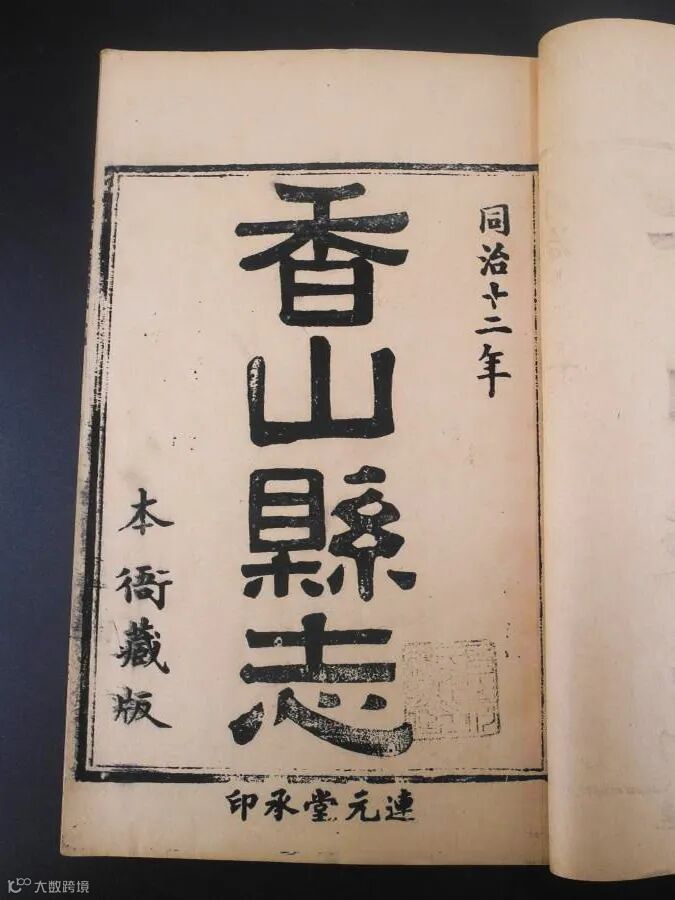 同治十二年
香山縣志
本衙藏版
連元堂承印
大数跨境